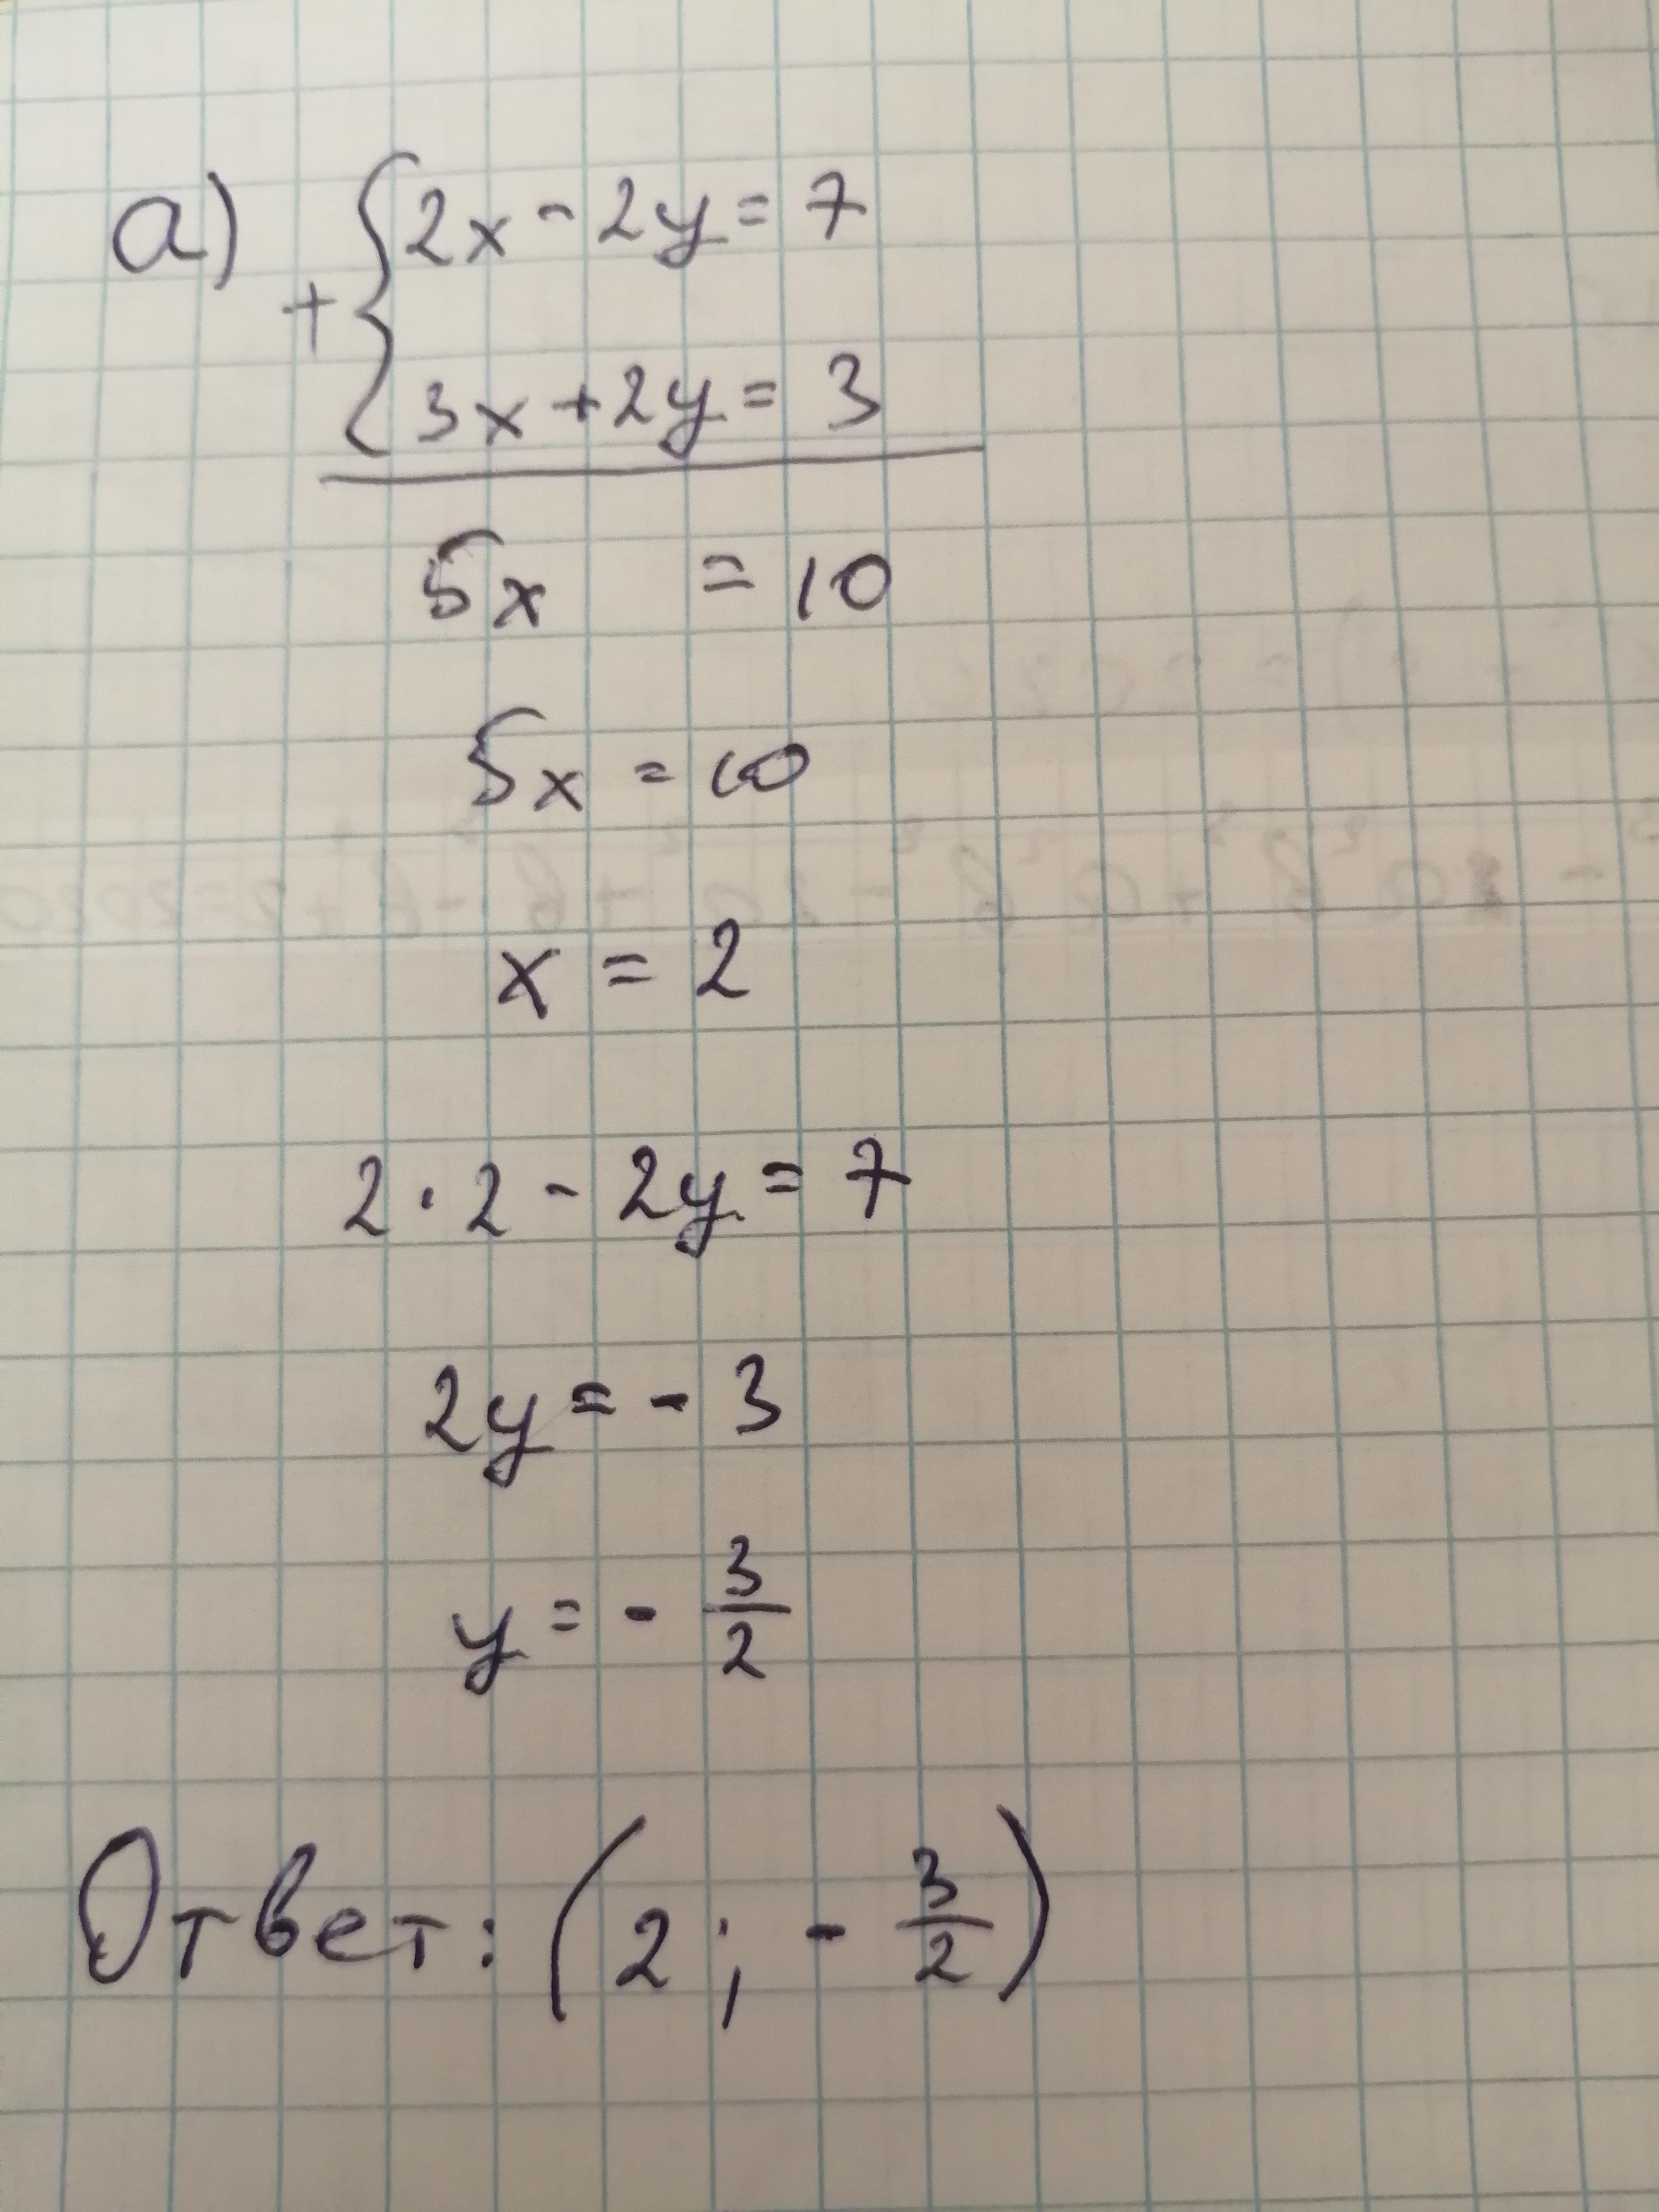 а) + { 2x - 2y = 7
3x + 2y = 3
5x = 10
5x = 10
x = 2
2 · 2 - 2y = 7
2y = - 3
y = - 3/2
Ответ: (2 ; - 3/2)